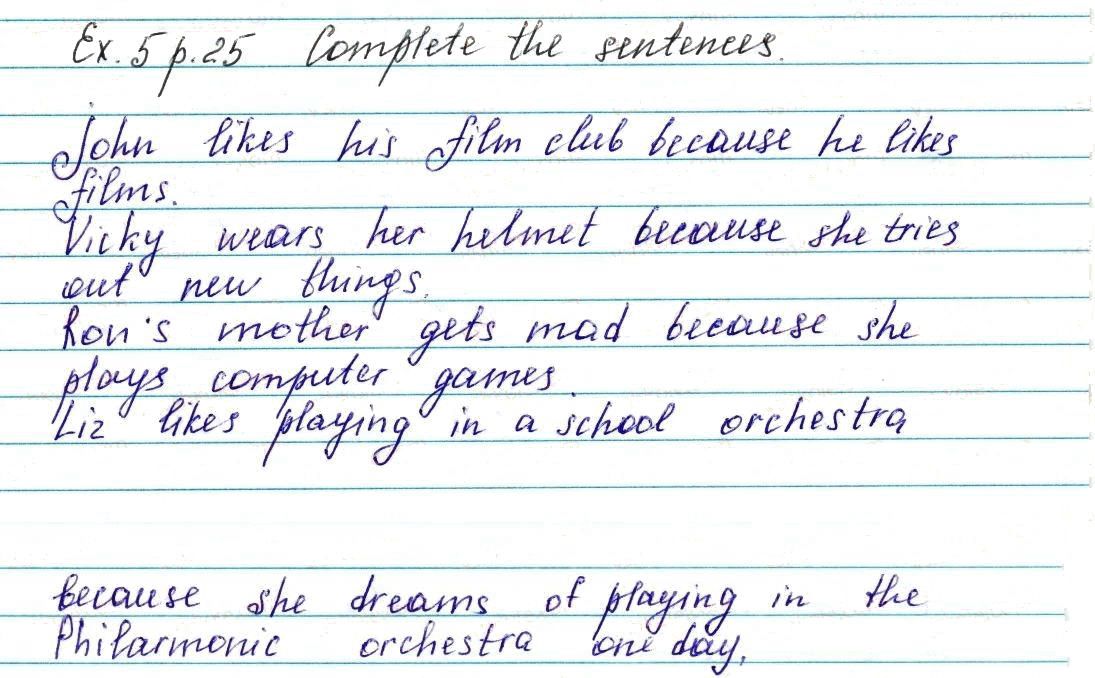 Ex. 5 p. 25 Complete the sentences.
John likes his film club because he likes
films.
Vicky wears her helmet because she tries
out new things.
Ron's mother gets mad because she
plays computer games
Liz likes playing in a school orchestra
because she dreams of playing in the
Philarmonic orchestra one day.